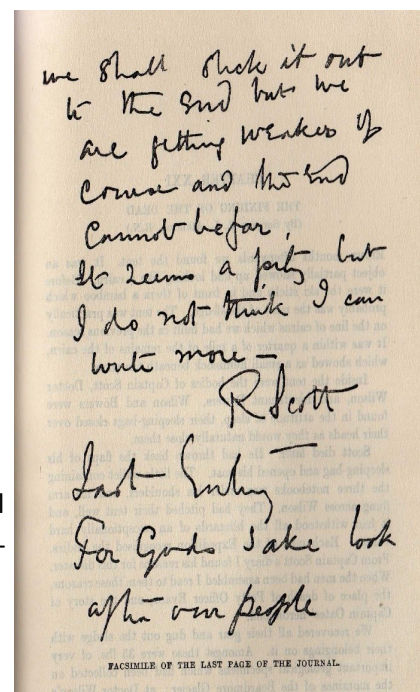 we shall stick it out
to the end but we
are getting weaker of
course and the end
cannot be far.
It seems a pity but
I do not think I can
write more –
R Scott
Last Entry
For Gods Sake look
after our people
FACSIMILE OF THE LAST PAGE OF THE JOURNAL.